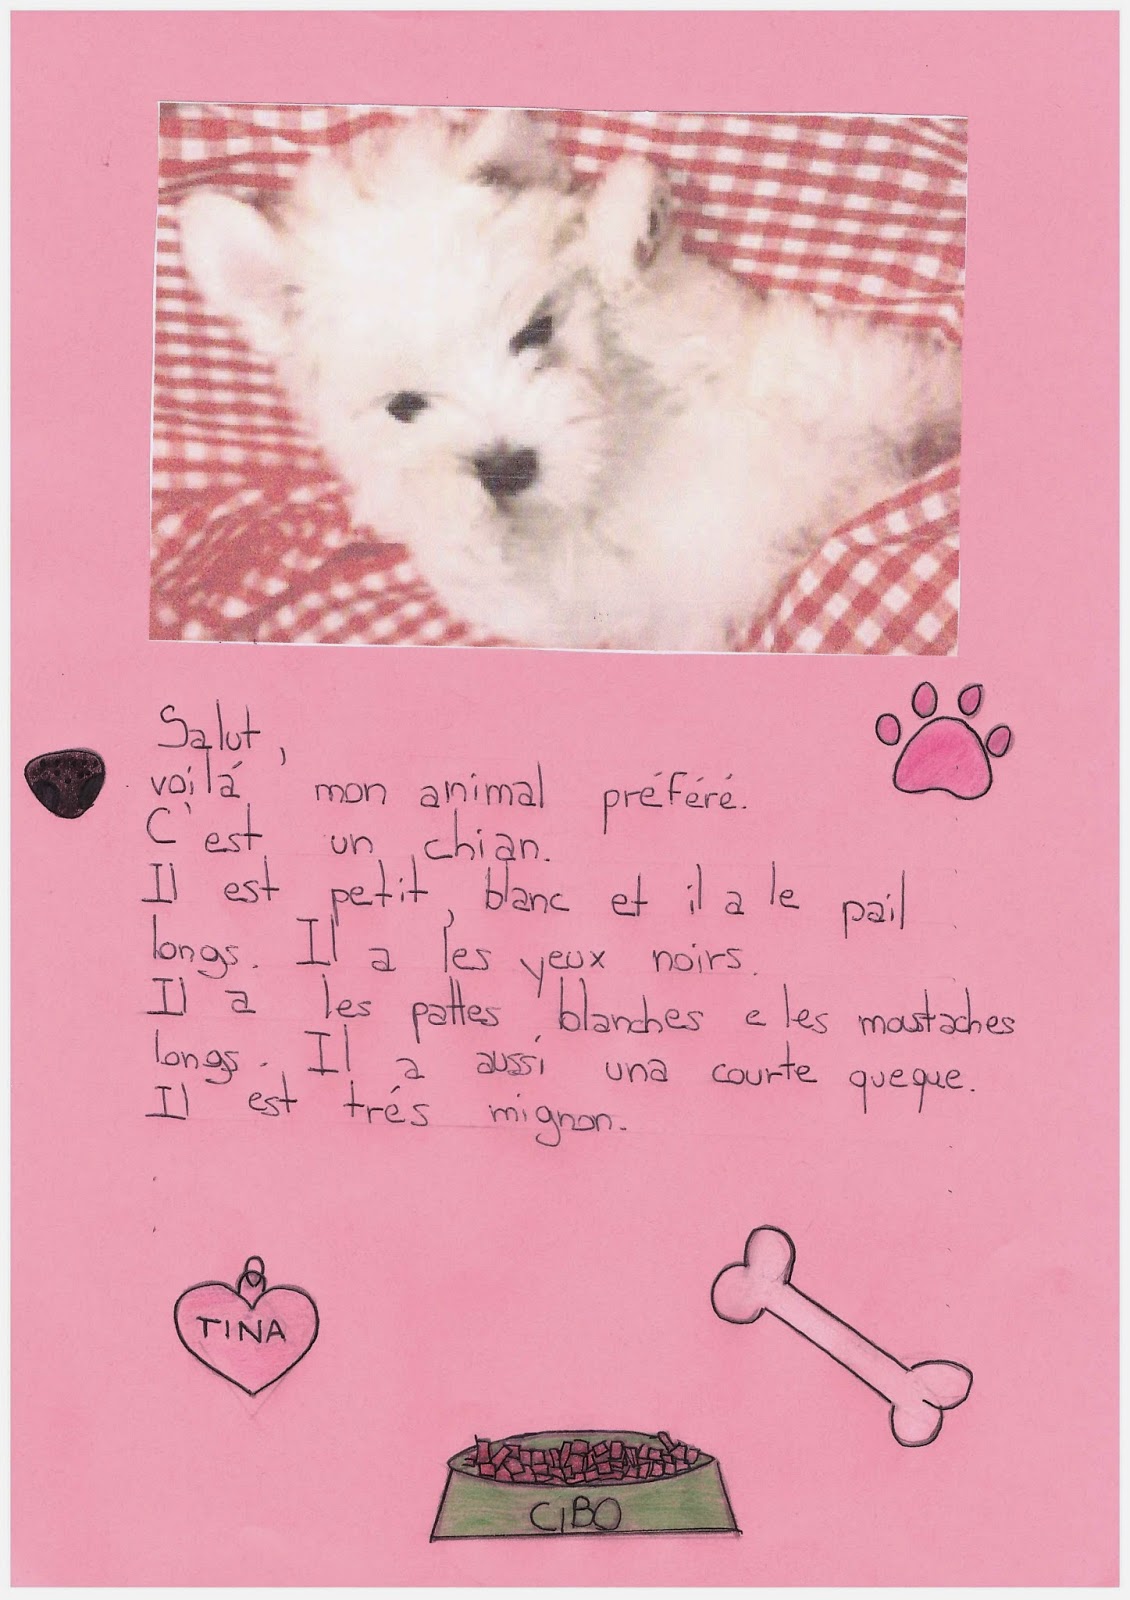 Salut,
voilá mon animal préféré.
C'est un chian.
Il est petit, blanc et il a le pail
longs. Il a les yeux noirs.
Il a les pattes blanches e les moustaches
longs. Il a aussi una courte queque.
Il est trés mignon.
TINA
CIBO